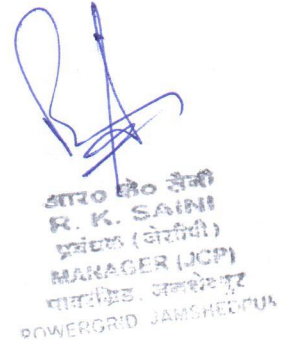 आर० के० सैनी
R. K. SAINI
प्रबंधक (जेसीपी)
MANAGER (JCP)
पावरग्रिड, जमशेदपुर
POWERGRID JAMSHEDPUR